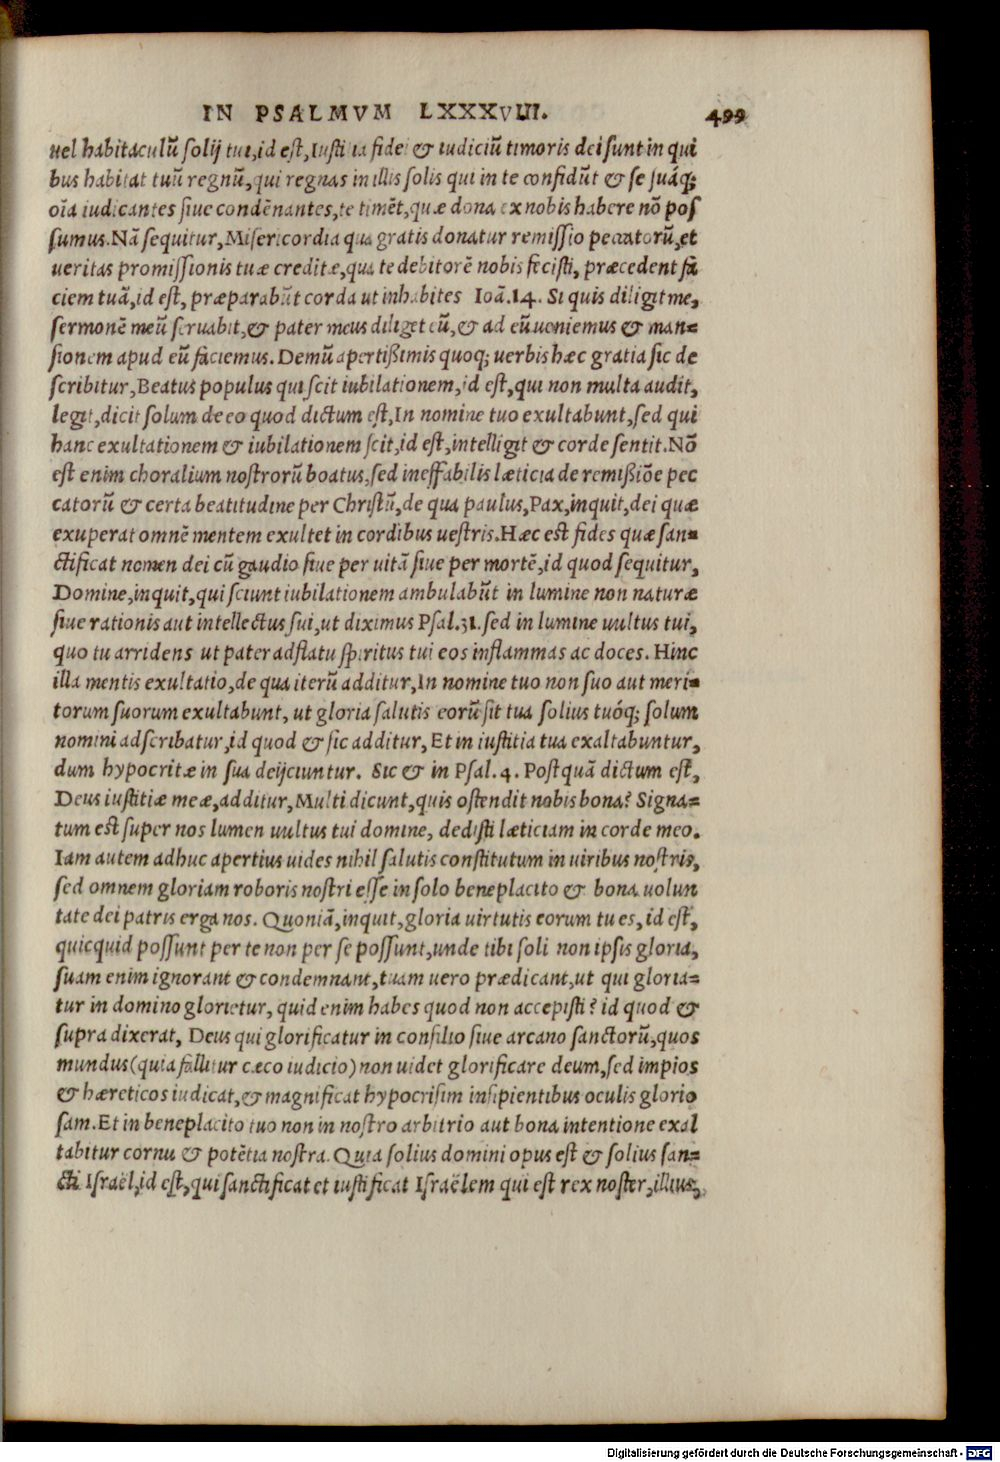 IN PSALMVM LXXXVIII. 499
uel habitaculũ solij tui, id est, Iustitia fidei & iudiciũ timoris dei sunt in qui
bus habitat tuũ regnũ, qui regnas in illis solis qui in te confidũt & se suáq;
oĩa iudicantes siue condẽnantes, te timẽt, quæ dona ex nobis habere nõ pos
sumus. Nã sequitur, Misericordia qua gratis donatur remissio peccatorũ, et
ueritas promissionis tuæ creditæ, qua te debitorẽ nobis fecisti, præcedent fa
ciem tuã, id est, præparabũt corda ut inhabites Ioã. 14. Si quis diligit me,
sermonẽ meũ seruabit, & pater meus diliget eũ, & ad eũ ueniemus & man=
sionem apud eũ faciemus. Demũ apertißimis quoq; uerbis hæc gratia sic de
scribitur, Beatus populus qui scit iubilationem, id est, qui non multa audit,
legit, dicit solum de eo quod dictum est, In nomine tuo exultabunt, sed qui
hanc exultationem & iubilationem scit, id est, intelligit & corde sentit. Nõ
est enim choralium nostrorũ boatus, sed ineffabilis læticia de remißiõe pec
catorũ & certa beatitudine per Christũ, de qua paulus, Pax, inquit, dei quæ
exuperat omnẽ mentem exultet in cordibus uestris. Hæc est fides quæ san=
ctificat nomen dei cũ gaudio siue per uitã siue per mortẽ, id quod sequitur,
Domine, inquit, qui sciunt iubilationem ambulabũt in lumine non naturæ
siue rationis aut intellectus sui, ut diximus Psal. 31. sed in lumine uultus tui,
quo tu arridens ut pater adflatu spiritus tui eos inflammas ac doces. Hinc
illa mentis exultatio, de qua iterũ additur, In nomine tuo non suo aut meri=
torum suorum exultabunt, ut gloria salutis eorũ sit tua solius tuóq; solum
nomini adscribatur, id quod & sic additur, Et in iustitia tua exaltabuntur,
dum hypocritæ in sua deijciuntur. Sic & in Psal. 4. Postquã dictum est,
Deus iustitiæ meæ, additur, Multi dicunt, quis ostendit nobis bona? Signa=
tum est super nos lumen uultus tui domine, dedisti læticiam in corde meo.
Iam autem adhuc apertius uides nihil salutis constitutum in uiribus nostris,
sed omnem gloriam roboris nostri esse in solo beneplacito & bona uolun
tate dei patris erga nos. Quoniã, inquit, gloria uirtutis eorum tu es, id est,
quicquid possunt per te non per se possunt, unde tibi soli non ipsis gloria,
suam enim ignorant & condemnant, tuam uero prædicant, ut qui gloria=
tur in domino glorietur, quid enim habes quod non accepisti? id quod &
supra dixerat, Deus qui glorificatur in consilio siue arcano sanctorũ, quos
mundus (quia fallitur cæco iudicio) non uidet glorificare deum, sed impios
& hæreticos iudicat, & magnificat hypocrisim insipientibus oculis glorio
sam. Et in beneplacito tuo non in nostro arbitrio aut bona intentione exal
tabitur cornu & potẽtia nostra. Quia solius domini opus est & solius san=
cti Israël, id est, qui sanctificat et iustificat Israëlem qui est rex noster, illius,
Digitalisierung gefördert durch die Deutsche Forschungsgemeinschaft - DFG